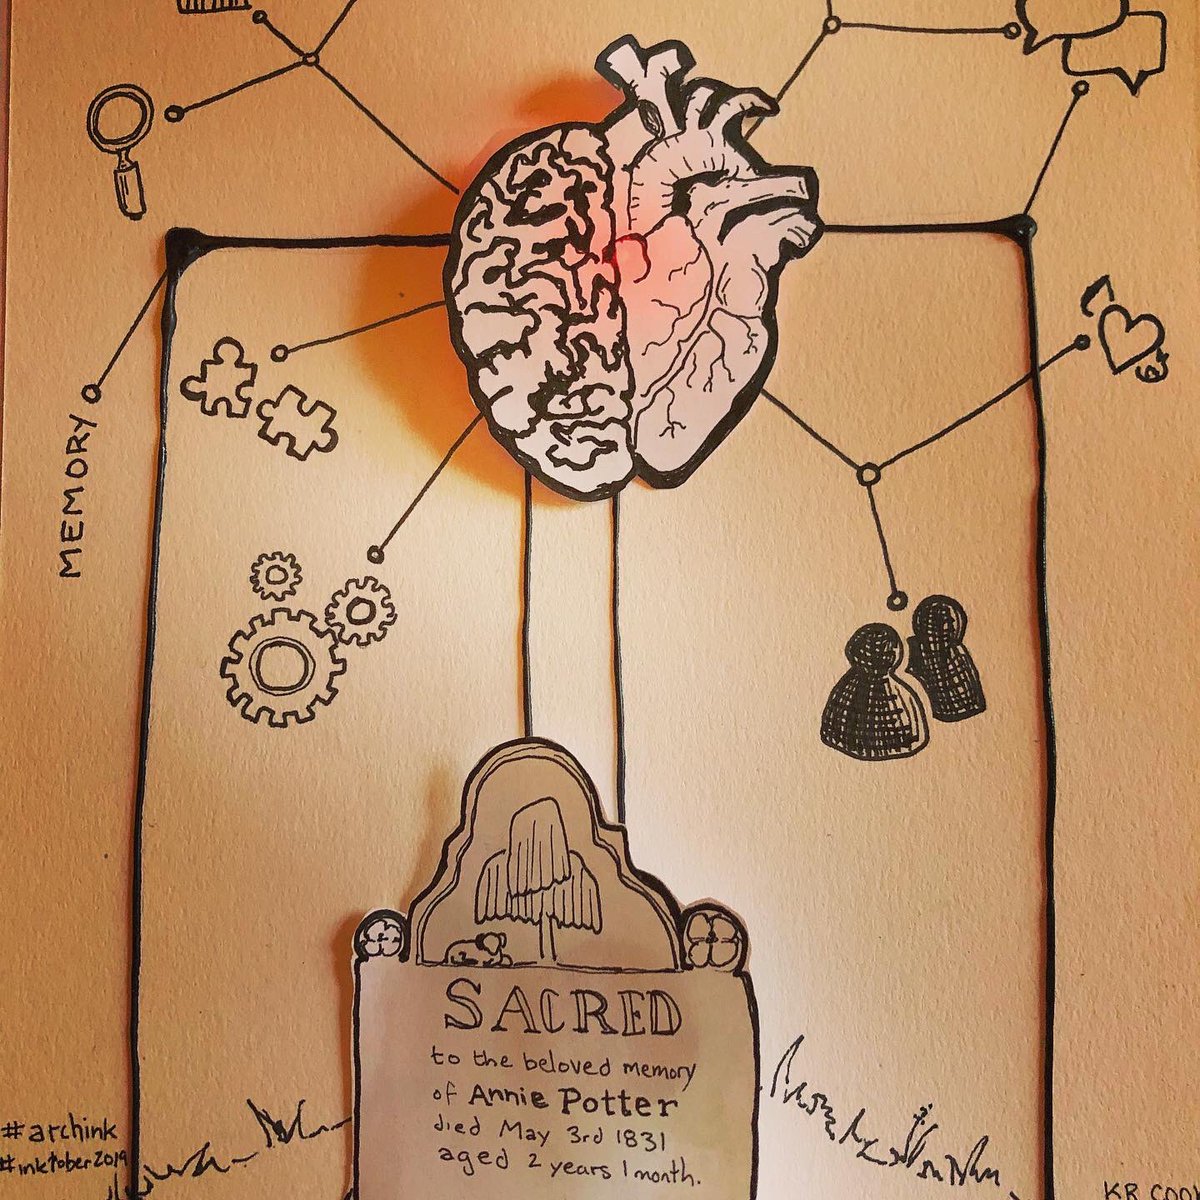 MEMORY
SACRED
to the beloved memory
of Annie Potter
died May 3rd 1831
aged 2 years 1 month.
#archink
#inktober2019
KR COOK